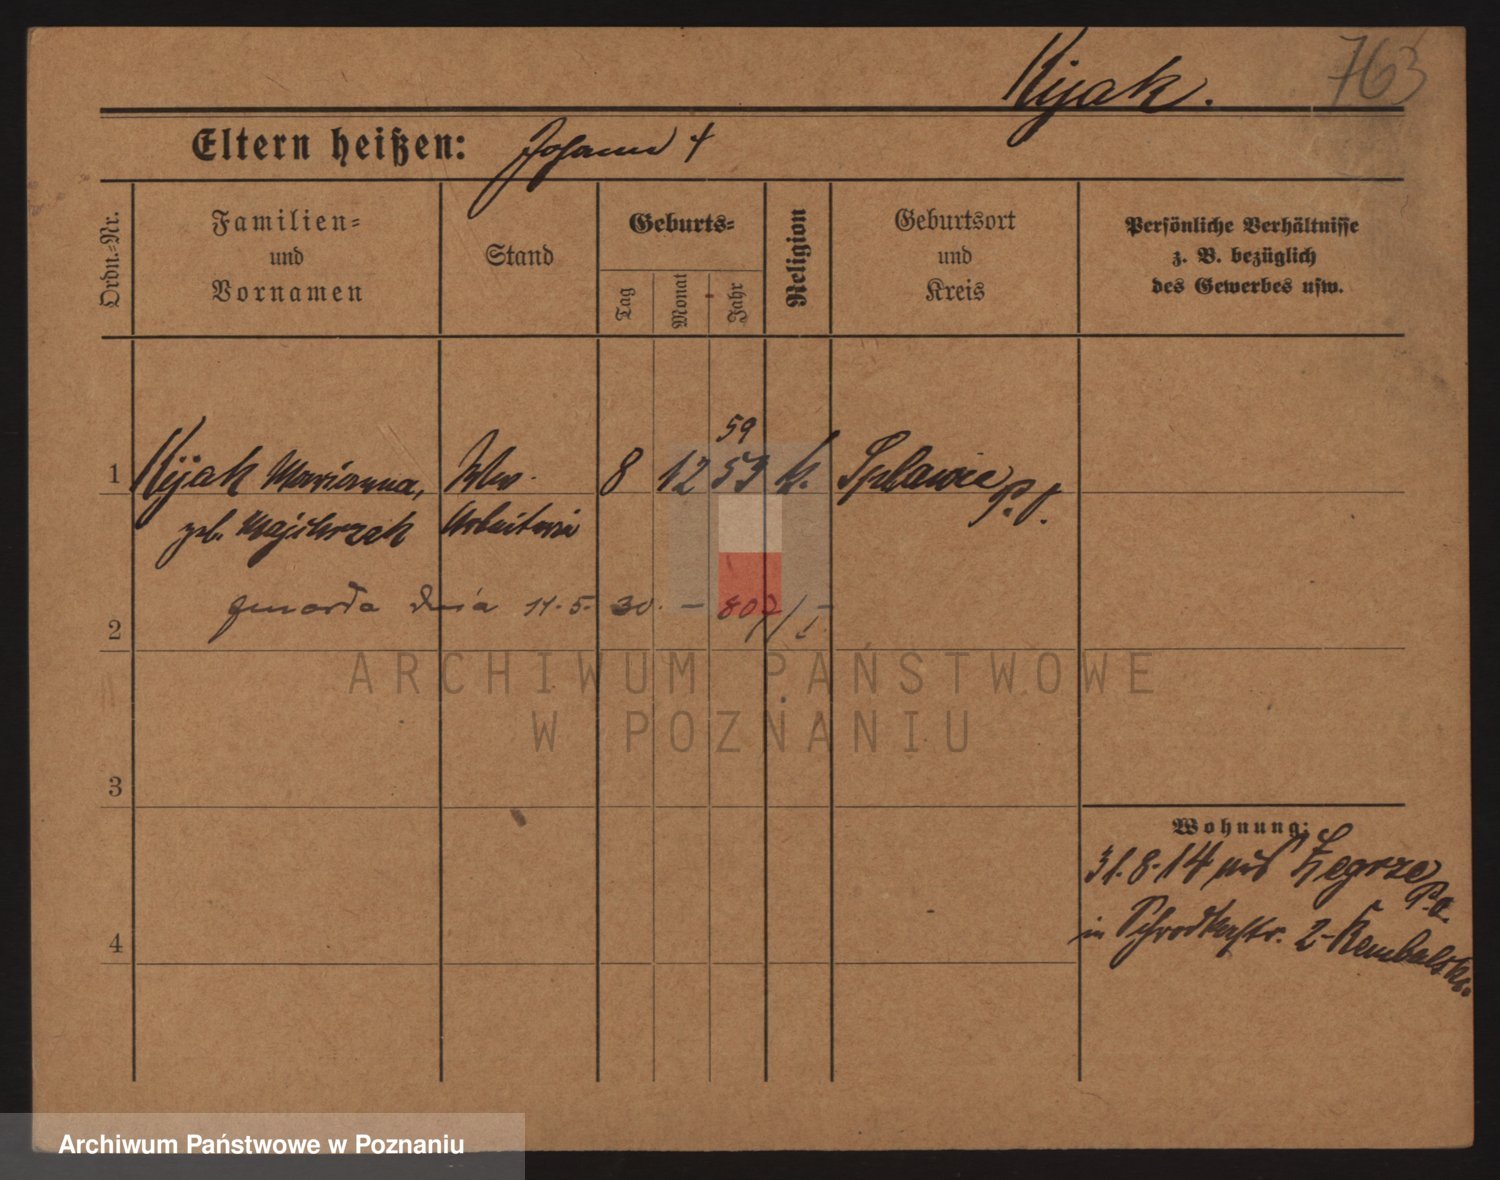 Kijak. 763
Eltern heißen: Johann †
Ordn.=Nr.
Familien=
und
Vornamen
Stand
Geburts=
Tag
Monat
Jahr
Religion
Geburtsort
und
Kreis
Persönliche Verhältnisse
z. B. bezüglich
des Gewerbes usw.
59
1 Kijak Marianna, Ww. 8 12 53 k. Splawie P. O.
geb. Majchrzak Arbeiterin
umarła dnia 11.5.30. – 807/
2
ARCHIWUM PAŃSTWOWE
W POZNANIU
3
Wohnung:
31.8.14 aus Zegrze P. O.
in Schrodkastr. 2 - Rembalski.
4
Archiwum Państwowe w Poznaniu